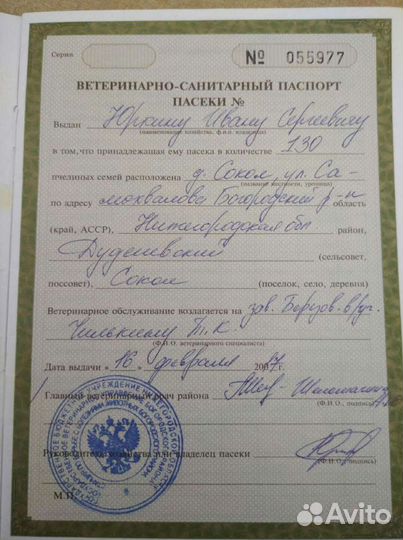 Серия
№ 055977
ВЕТЕРИНАРНО-САНИТАРНЫЙ ПАСПОРТ
ПАСЕКИ №
Выдан Юркину Ивану Сергеевичу
(наименование хозяйства, ф.и.о. владельца)
в том, что принадлежащая ему пасека в количестве 130
пчелиных семей расположена д. Сокол, ул. Са-
(название местности, урочища)
по адресу мохвалова Богородский р-н область
(край, АССР), Нижегородская обл район,
Дуденевский (сельсовет,
поссовет), Сокол (поселок, село, деревня)
Ветеринарное обслуживание возлагается на зав.
Т.К.
(Ф.И.О. ветеринарного специалиста)
Дата выдачи « 16 » февраля 2017 г.
Главный ветеринарный врач района
(Ф.И.О., подпись)
Руководитель хозяйства или владелец пасеки
(Ф.И.О., подпись)
М.П.
Avito